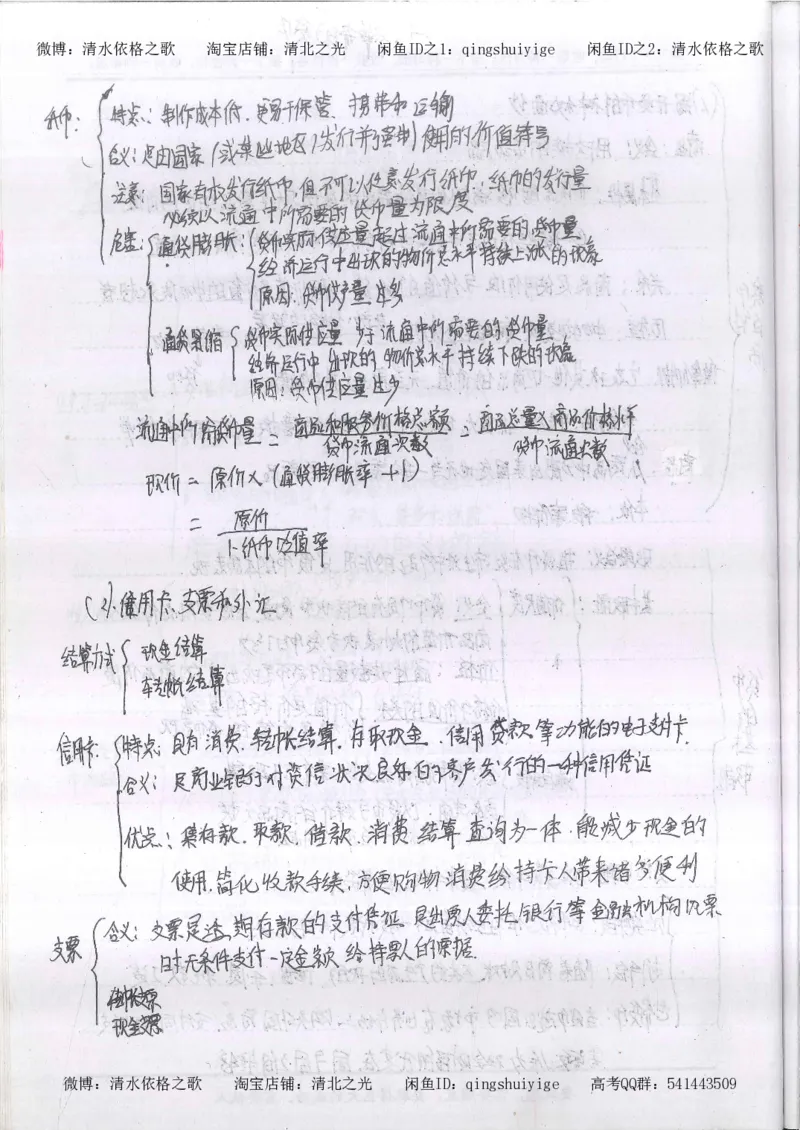 微博：清水依格之歌 淘宝店铺：清北之光 闲鱼ID之1：qingshuiyige 闲鱼ID之2：清水依格之歌
纸币：
特点：制作成本低，更易于保管、携带和运输
含义：是由国家（或某些地区）发行并强制使用的价值符号
国家有权发行纸币，但不可以任意发行纸币，纸币的发行量
必须以流通中所需要的货币量为限度
通货膨胀：货币实际供应量超过流通中所需要的货币量
经济运行中出现的物价总水平持续上涨的现象
原因：货币供应量过多
通货紧缩 货币实际供应量少于流通中所需要的货币量
经济运行中出现的物价总水平持续下跌的现象
原因：货币供应量过少
流通中所需货币量 = 商品和服务价格总额/货币流通次数 = 商品总量×商品价格水平/货币流通次数
现价 = 原价×（通货膨胀率+1）
= 原价/1-纸币贬值率
（2）信用卡、支票和外汇
结算方式 现金结算
转帐结算
信用卡：特点：具有消费、转帐结算、存取现金、信用贷款等功能的电子支付卡
含义：是商业银行对资信状况良好的客户发行的一种信用凭证
优点：集存款、取款、借款、消费、结算、查询为一体，能减少现金的
使用，简化收款手续，方便购物消费给持卡人带来诸多便利
支票 含义：支票是活期存款的支付凭证，是出票人委托银行等金融机构见票
时无条件支付一定金额给持票人的票据。
转帐支票
现金支票
微博：清水依格之歌 淘宝店铺：清北之光 闲鱼ID：qingshuiyige 高考QQ群：541443509